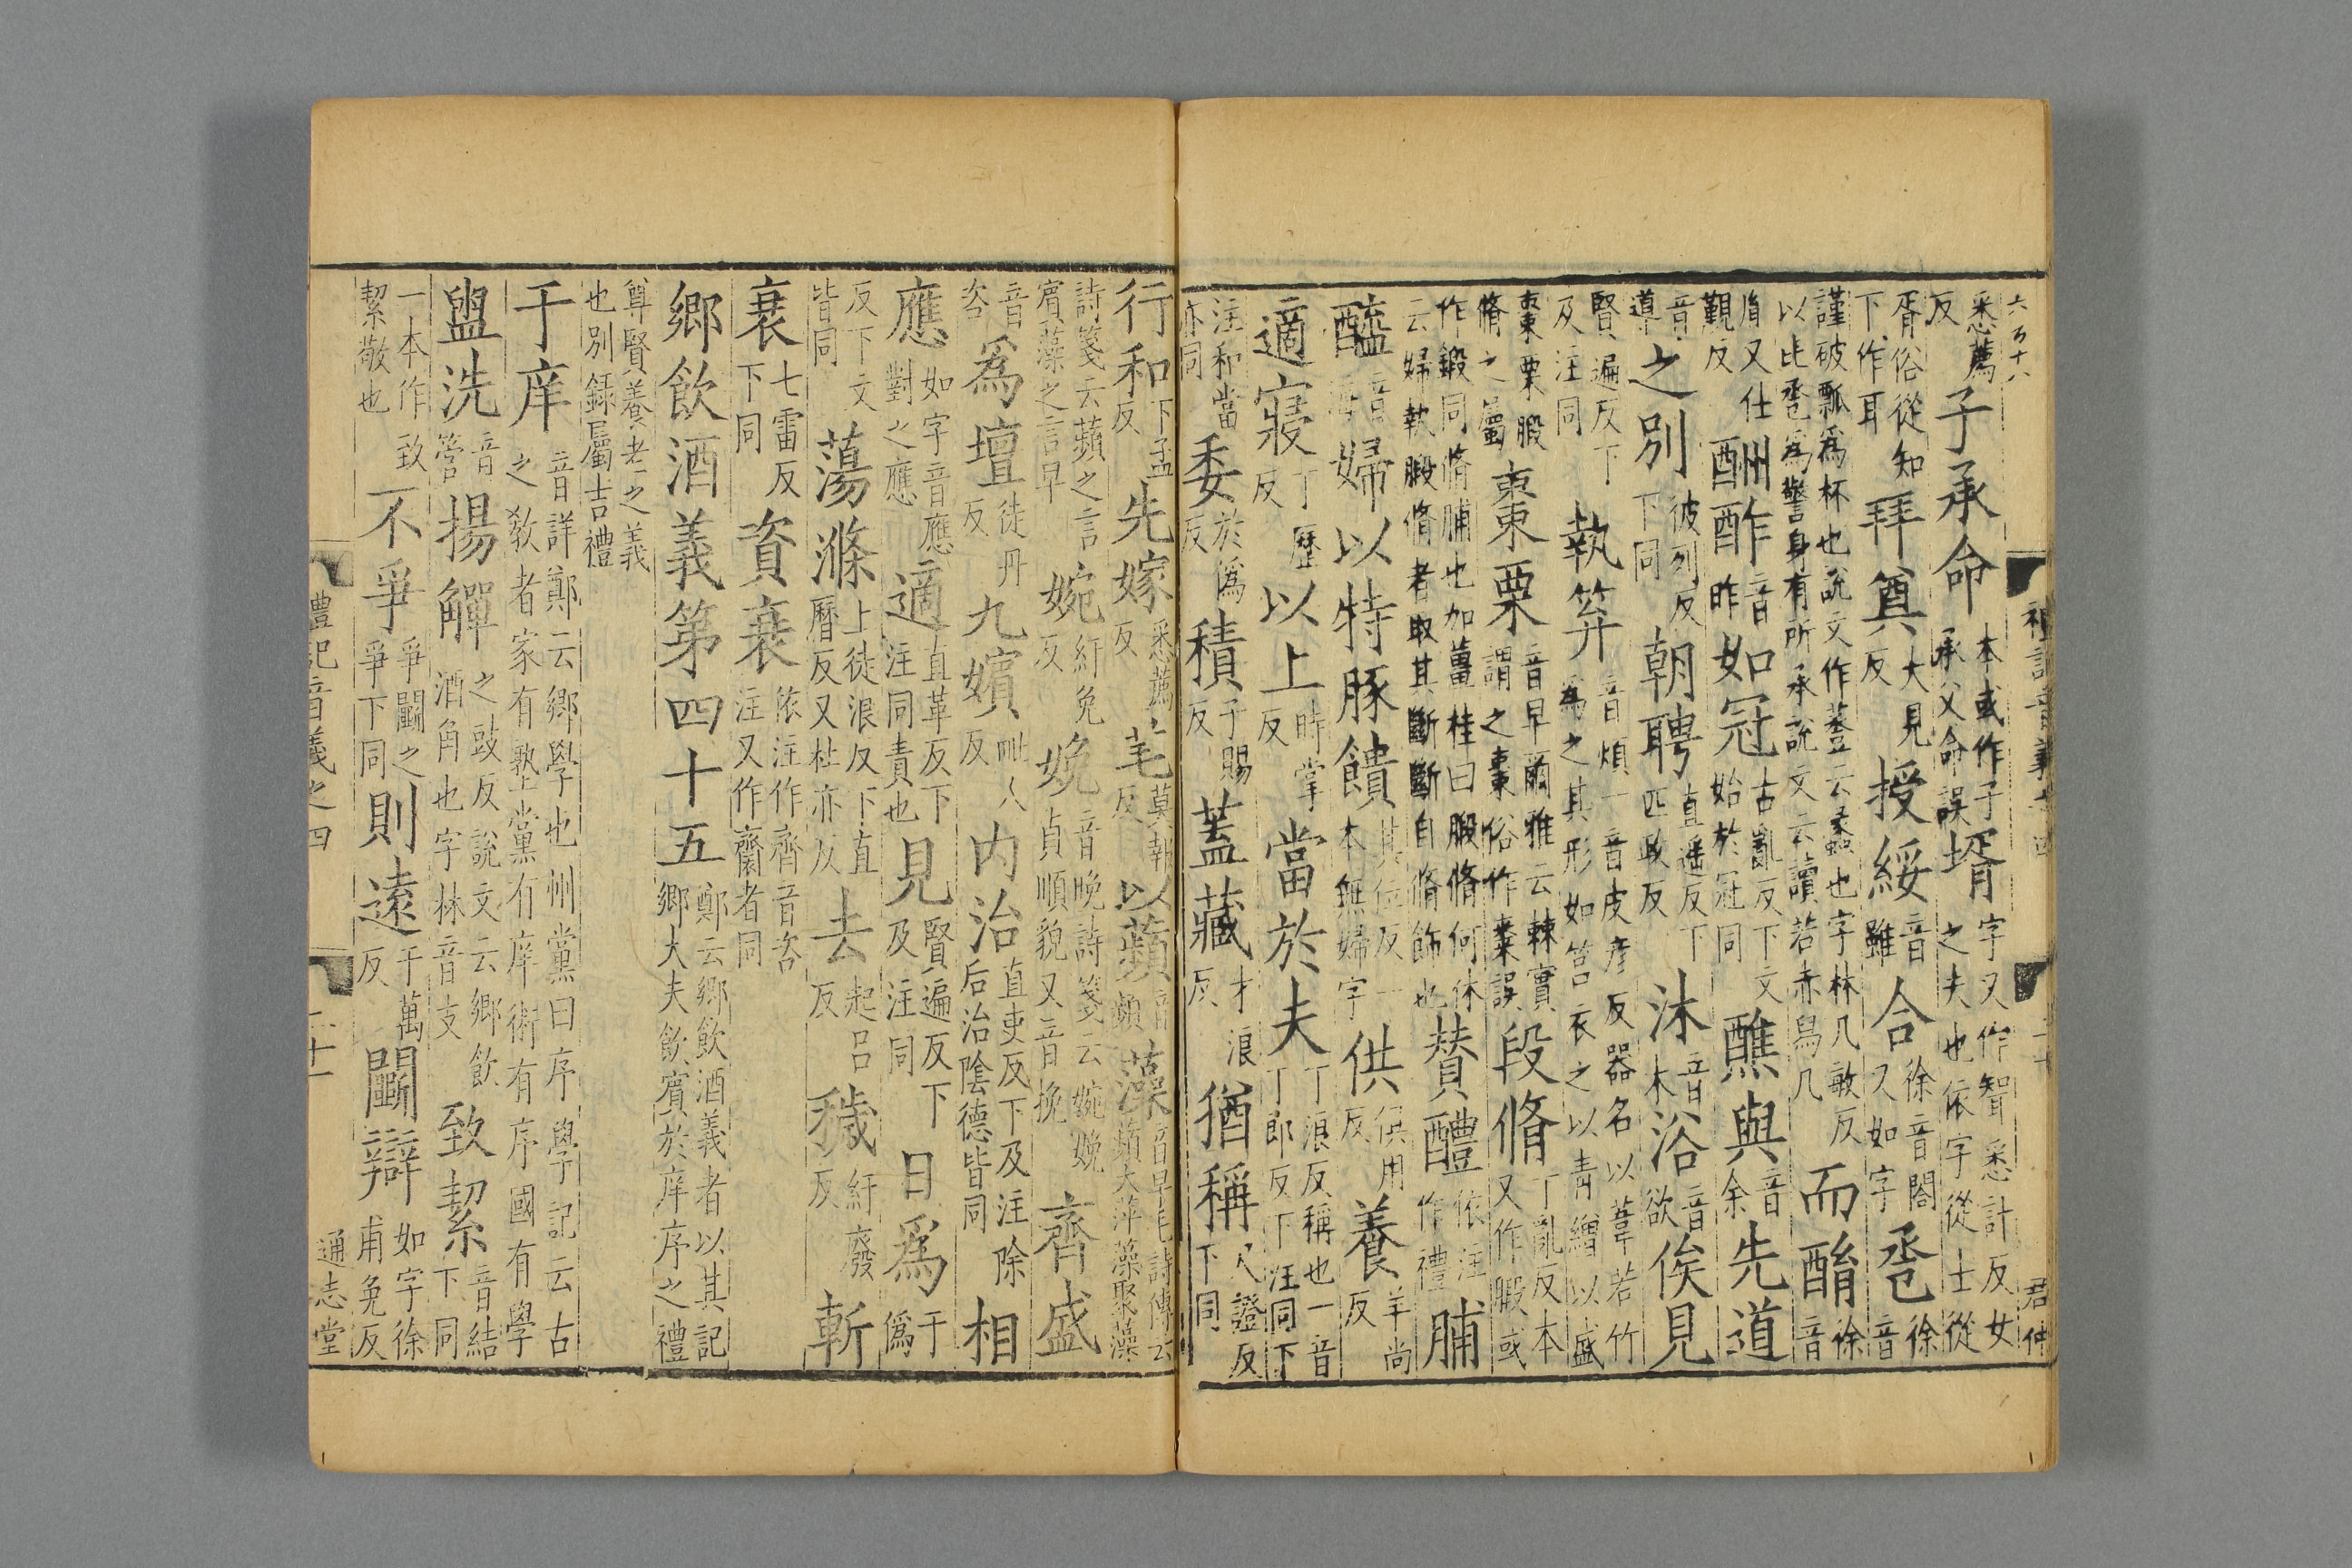 六百十八 禮記音義之四 二十 君仲
悉薦反 子承命 本或作子承父命誤 壻 字又作聟悉計反女之夫也依字從士從
胥俗從知下作耳 拜奠 大見反 授綏 音雖 合 徐音閤又如字 巹 徐音
謹破瓢爲杯也說文作䔲云蠡也字林几敏反以此巹爲警身有所承說文云讀若赤舄几 而酳 徐音
胤又仕覲反 酬酢 音昨 如冠 古亂反下文始於冠同 醮與 音余 先道
音導 之別 彼列反下同 朝聘 直遥反下匹政反 沐 音木 浴 音欲 俟見
賢遍反下及注同 執笲 音煩一音皮彦反器名以葦若竹爲之其形如筥衣之以青繒以盛
棗栗腶脩之屬 棗栗 音早爾雅云棘實謂之棗俗作枣誤 段脩 丁亂反本又作腶或
作鍛同脩脯也加薑桂曰腶脩何休云婦執腶脩者取其斷斷自脩飾也 賛醴 依注作禮 脯
醢 音海 婦以特豚饋 其位反一本無婦字 供 俱用反 養 羊尚反
適寢 丁歷反 以上 時掌反 當於夫 丁浪反稱也一音丁郎反下注同下
注和當亦同 委 於僞反 積 子賜反 蓋藏 才浪反 猶稱 尺證反下同
行和 下孟反 先嫁 悉薦反 芼 莫報反 以蘋 音頻 藻 音早毛詩傳云蘋大萍藻聚藻
詩箋云蘋之言賓藻之言早 婉 紆免反 娩 音晚詩箋云婉娩貞順貌又音挽 齊盛
音咨 爲壇 徒丹反 九嬪 毗人反 内治 直吏反下及注除后治陰德皆同 相
應 如字音應對之應 適 直革反下注同責也 見 賢遍反下及注同 日爲 于僞
反下文皆同 蕩滌 上徒浪反下直曆反又杜亦反 去 起呂反 穢 紆廢反 斬
衰 七雷反下同 資衰 依注作齊音咨注又作齌者同
鄉飲酒義第四十五 鄭云鄉飲酒義者以其記鄉大夫飲賓於庠序之禮
尊賢養老之義也別録屬吉禮
于庠 音詳鄭云鄉學也州黨曰序學記云古之教者家有塾黨有庠術有序國有學
盥洗 音管 揚觶 之豉反說文云鄉飲酒角也字林音支 致絜 音結下同
一本作致絜敬也 不爭 爭鬭之爭下同 則遠 于萬反 鬭辯 如字徐甫免反
禮記音義之四 二十一 通志堂